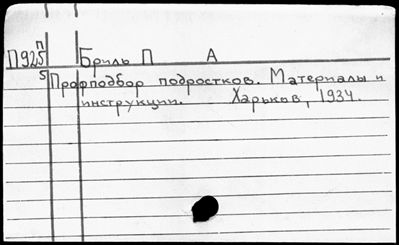 П925 п Бриль П А
5 Профподбор подростков. Материалы и
инструкции. Харьков, 1934.